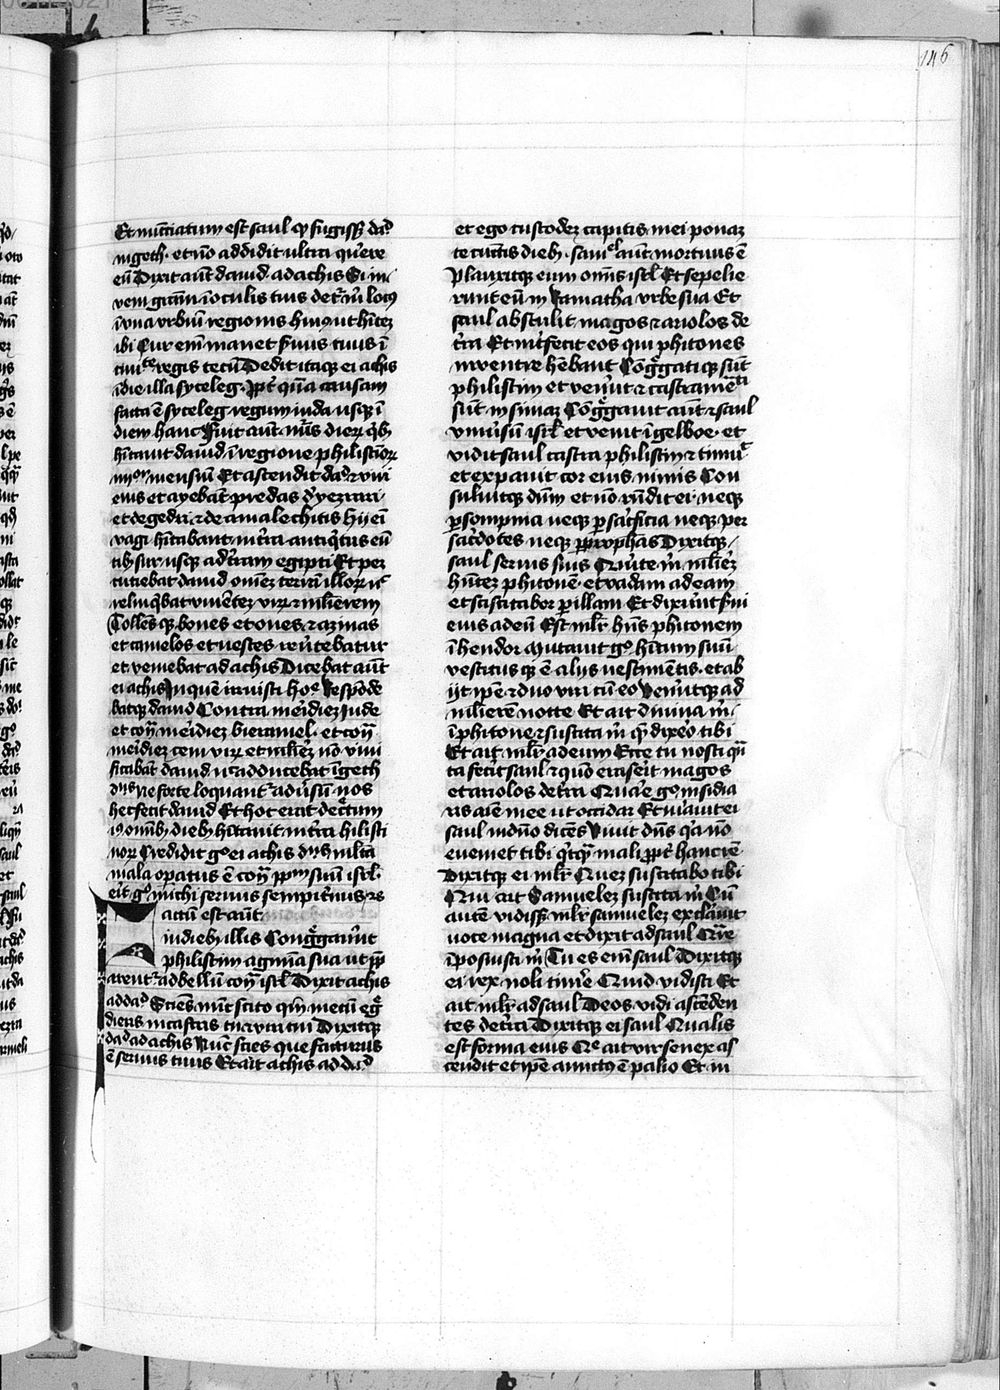 146
Et nunciatum est saul qꝫ fugisset dad
in geth · et nō addidit ultra querere
eū Dixit aūt dauid ad achis Si in
veni graciam ī oculis tuis detur michi locus
ī vna vrbiū regionis huius ut habitem
ibi Cur em̄ manet seruus tuus ī
ciuitate regis tecū Dedit itaqꝫ ei achis
ī die illa syceleg · Propter quā causam
facta ē syceleg regum iuda usqꝫ ī
diem hanc Fuit aūt nūs dierum qbꝫ
hitauit dauid ī regione philistiorum
iiijor mensium Et ascendit dad ⁊ viri
eius et agebāt predas de yezzuri
et de gedri ⁊ de amalechitis hij ei
vagi hitabant in terra antiquitus eū
tibꝫ sur usqꝫ ad terram egipti Et per
cutiebat dauid omēm terrā illorum nec
relinqbat viuentem virum ⁊ mulierem
Tollēs qꝫ boues et oues ⁊ azinas
et camelos et uestes reuertebatur
et veniebat ad achis Dicebat aūt
ei achis In quem irruisti hodie Respōde
batqꝫ dauid Contra meridiem Jude
et contra meridiem hieramel · et contra
meridiem ceni virum et mulierem nō viui
ficabāt dauid nec adducebat ī geth
dicens ne forte loquantur aduersū nos
hec fecit dauid Et hoc erat decretum
illi omībꝫ diebꝫ hitauit in terra philisti
norum Credidit gº ei achis dauid multa
mala opatus ē contra ppm suum israel ·
erit gº michi seruus sempiternus ⁊c
Factum est aūt
in diebꝫ illis Congregauerunt
philistim agmina sua ut prepar
arentur ad bellū contra israel Dixit achis
ad dad Sciēs nunc scito qm mecū egre
dieris in castris tu ⁊ viri tui Dixitqꝫ
dad ad achis Nūc scies que facturus
ē seruus tuus Et ait achis ad dad
et ego custodem capitis mei ponam
te cunctis diebꝫ · samuel aūt mortuus ē
Planxitqꝫ eum omnis israel Et sepelie
runt eū in Ramatha vrbe sua Et
saul abstulit magos ⁊ ariolos de
terra Et interfecit eos qui phitones
in ventre habebant Congregatiqꝫ sūt
philistim et venerunt ⁊ castrameta
ti sunt in sunam Congregauit aūt ⁊ saul
vniuersū israel et venit ī gelboe · et
vidit saul castra philistim ⁊ timuit
et expauit cor eius nimis Con
suluitqꝫ dnm et nō respondit ei · neqꝫ
per sompnia neqꝫ per sacrificia neqꝫ per
sacerdotes neqꝫ per prophetas Dixitqꝫ
saul seruis suis Querite michi mulierem
habentem phitonē · et vadam ad eam
et sciscitabor per illam Et dixerunt serui
eius ad eū Est mulier habens phitonem
ī hendor Mutauit gº habitum suum
vestitus qꝫ ē alijs vestimentis · et ab
ijt ipse ⁊ duo viri cū eo Veneruntqꝫ ad
mulierē nocte Et ait diuina michi
ī phitone ⁊ suscita michi quem dixero tibi
Et ait mulier ad eum Ecce tu nosti quan
ta fecit saul ⁊ quō eraserit magos
et ariolos de terra Quare gº insidia
ris aīe mee ut occidar Et iurauit ei
saul in dnō dicēs Viuit dns quia nō
eueniet tibi quicquam mali propter hanc rē ·
Dixitqꝫ ei mulier Quem suscitabo tibi
Qui ait Samuelem suscita michi Cū
autē vidisset mulier samuelem exclamauit
uoce magna et dixit ad saul Quare
īposuisti michi Tu es em̄ saul Dixitqꝫ
ei rex · noli timere Quid vidisti Et
ait mulier ad saul Deos vidi ascēden
tes de terra Dixitqꝫ ei saul Qualis
est forma eius Que ait vir senex as
cendit et ipse amictus ē palio Et in